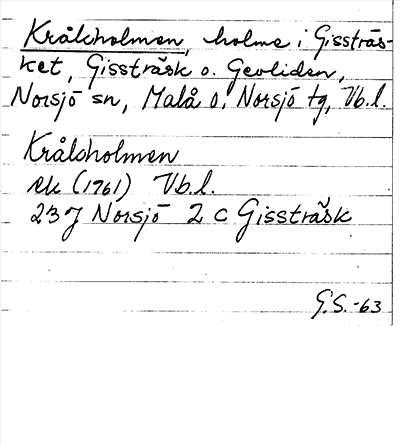 Kråkholmen, holme i Gissträs-
ket, Gissträsk o. Gevliden,
Norsjö sn, Malå o. Norsjö tg, Vb.l.
Kråkholmen
ek (1961) Vb.l.
23J Norsjö 2 c Gissträsk
G.S.-63